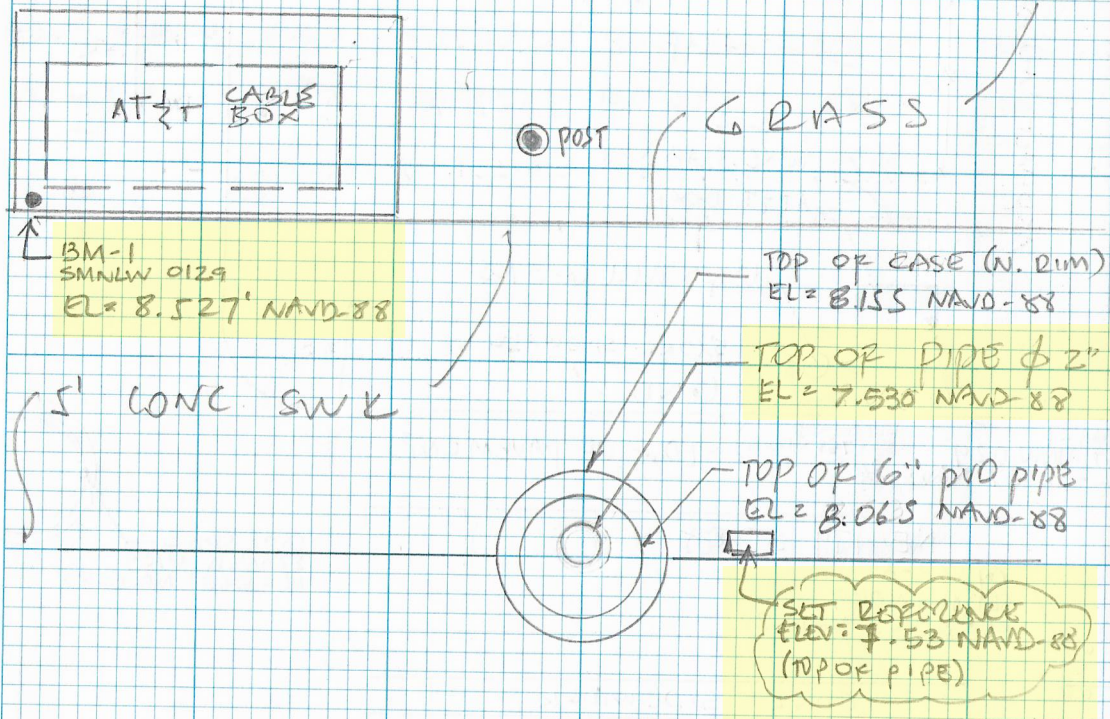 AT&T CABLE
BOX
POST
GRASS
BM-1
SMNLW 0129
EL= 8.527' NAVD-88
TOP OF CASE (N. RIM)
EL= 8.155 NAVD-88
TOP OF PIPE ϕ 2"
EL= 7.530' NAVD-88
5' CONC SWK
TOP OF 6" PVD PIPE
EL= 8.065 NAVD-88
SET REFERENCE
ELEV= 7.53 NAVD-88
(TOP OF PIPE)